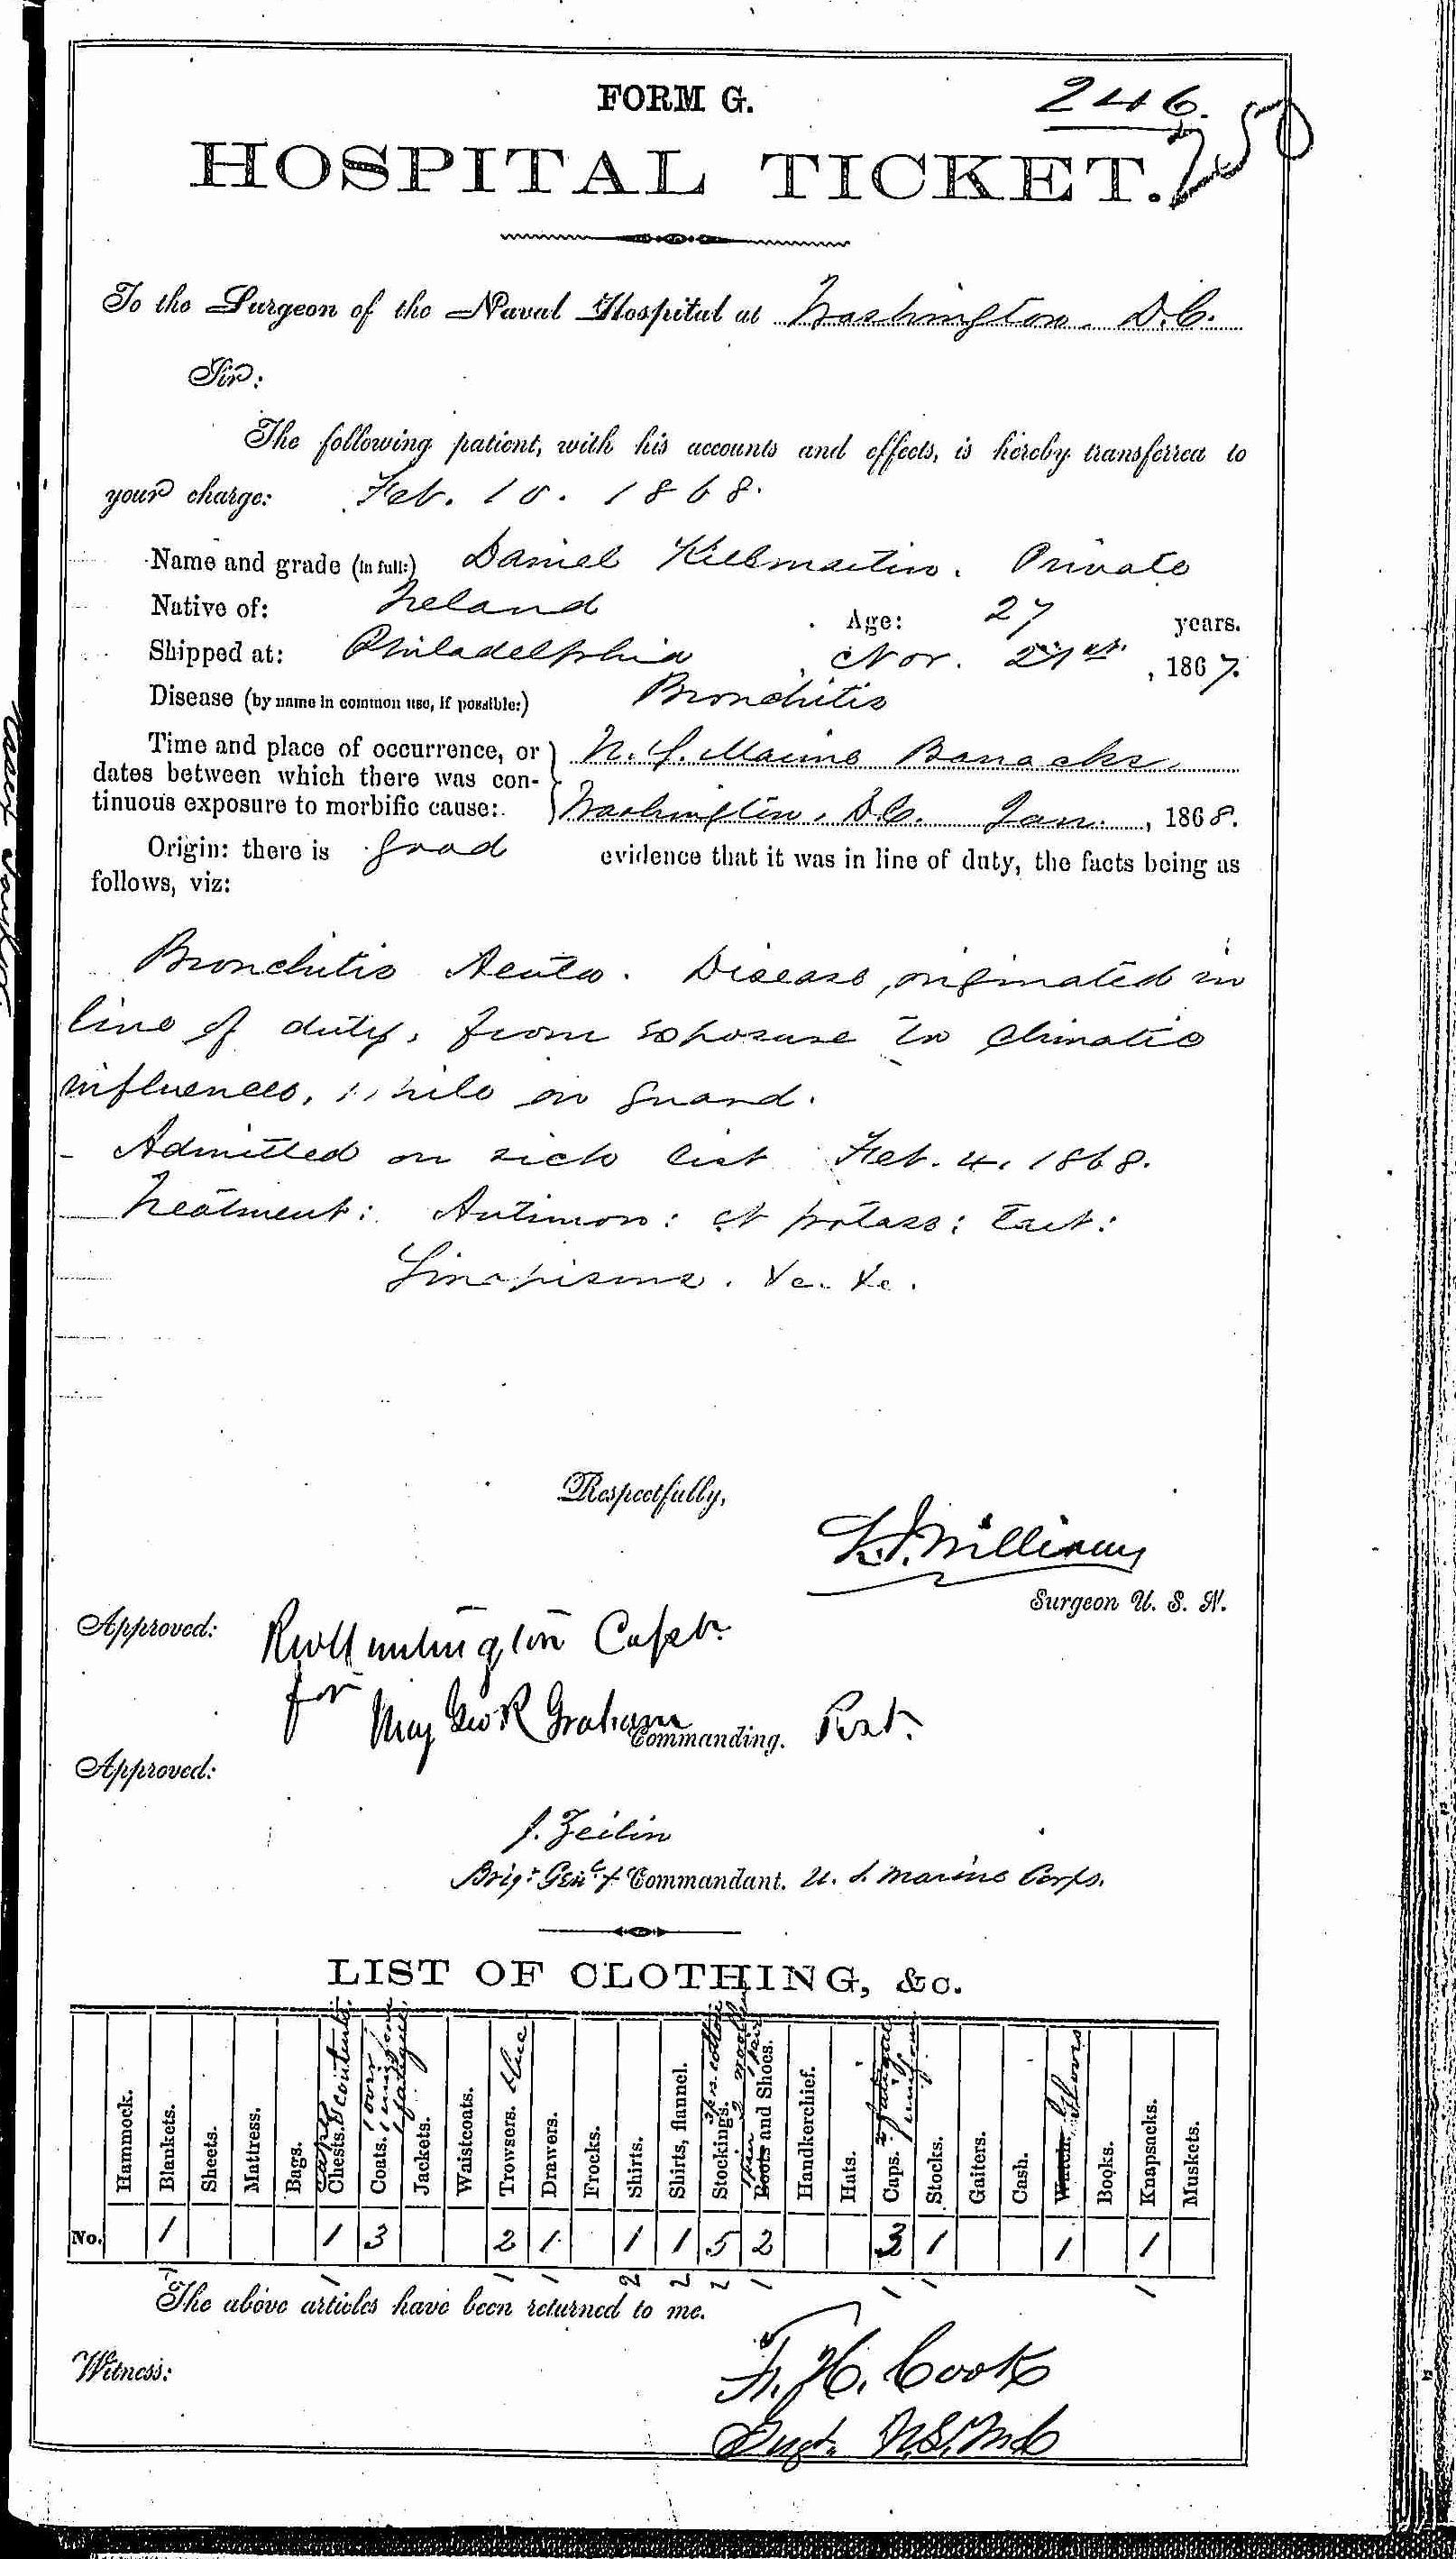 FORM G.
246.
250
HOSPITAL TICKET.
To the Surgeon of the Naval Hospital at Washington. D.C.
Sir:
The following patient, with his accounts and effects, is hereby transferred to
your charge: Feb. 10. 1868.
Name and grade (in full:) Daniel Private
Native of: Ireland Age: 27 years.
Shipped at: Philadelphia Nov. 21st , 1867.
Disease (by name in common use, if possible:) Bronchitis
Time and place of occurrence, or
dates between which there was con-
tinuous exposure to morbific cause:.
U.S. Marine Barracks,
Washington, D.C. Jan. , 1868.
Origin: there is good evidence that it was in line of duty, the facts being as
follows, viz:
Bronchitis Acuta. Disease, originated in
line of duty, from exposure to climatic
influences, while on guard.
Admitted on sick list Feb. 4, 1868.
Treatment: Antimon: et potass: tart:
Sinapisms. &c. &c.
Respectfully,
Williams
Surgeon U. S. N.
Approved: Huntington Capt.
for Maj Geo R Graham
Commanding. Post.
Approved:
J. Zeilin
Brig: Genl & Commandant. U. S. Marine Corps.
LIST OF CLOTHING, &c.
Hammock. Blankets. Sheets. Mattress. Bags. Chests. Coats. Jackets. Waistcoats. Trowsers. blue Drawers. Frocks. Shirts. Shirts, flannel. Stockings. Boots and Shoes. Handkerchief. Hats. Caps. Stocks. Gaiters. Cash. Watch. Gloves Books. Knapsacks. Muskets.
No. 1 1 3 2 1 1 1 5 2 3 1 1 1
1 1 1 1 2 2 2 1 1 1 1
The above articles have been returned to me.
Witness:
F. H. Cook
Sergt. U.S.M.C